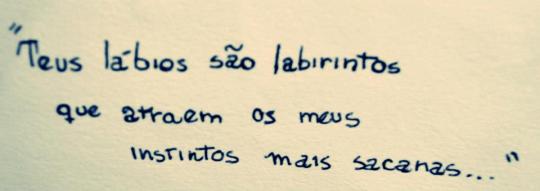 "Teus lábios são labirintos
que atraem os meus
instintos mais sacanas..."